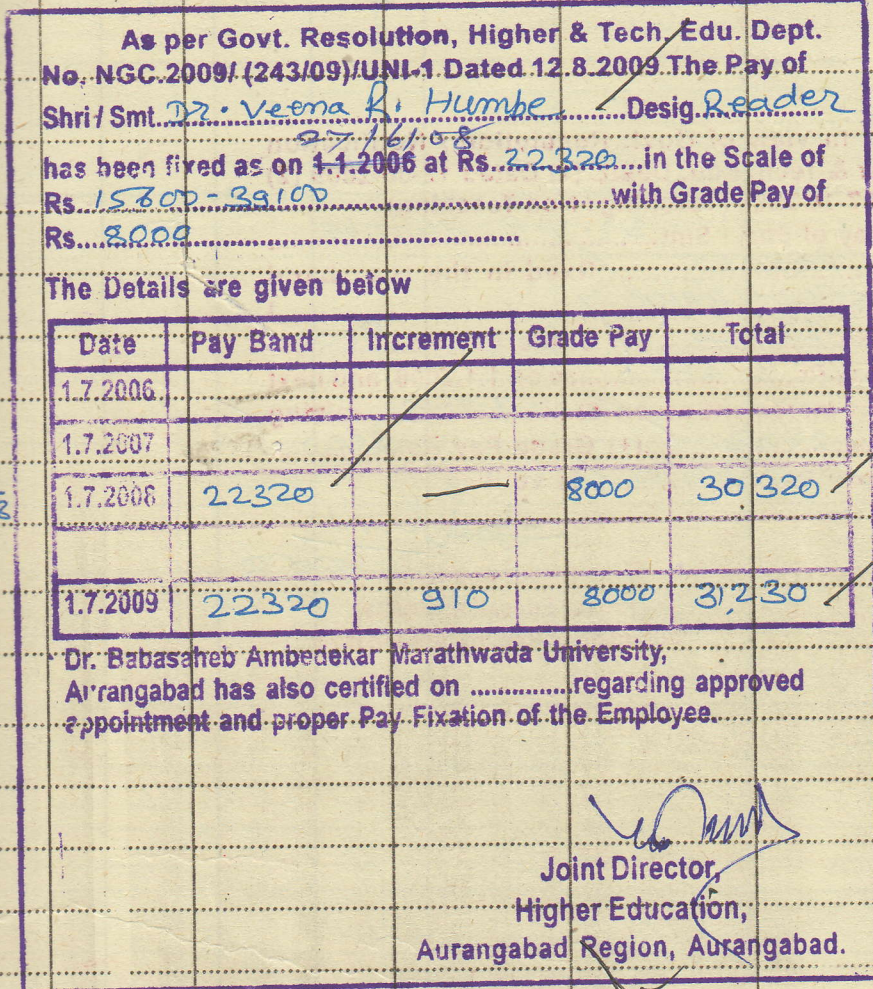 As per Govt. Resolution, Higher & Tech. Edu. Dept.
No. NGC.2009/ (243/09)/UNI-1 Dated 12.8.2009 The Pay of
Shri / Smt. Dr. Veena R. Humbe Desig. Reader
27/6/08
has been fixed as on 1.1.2006 at Rs. 22320 in the Scale of
Rs. 15600-39100 with Grade Pay of
Rs. 8000
The Details are given below
Date Pay Band Increment Grade Pay Total
1.7.2006
1.7.2007
1.7.2008 22320 — 8000 30320
1.7.2009 22320 910 8000 31,230
Dr. Babasaheb Ambedekar Marathwada University,
Aurangabad has also certified on ............... regarding approved
appointment and proper Pay Fixation of the Employee.
Joint Director,
Higher Education,
Aurangabad Region, Aurangabad.